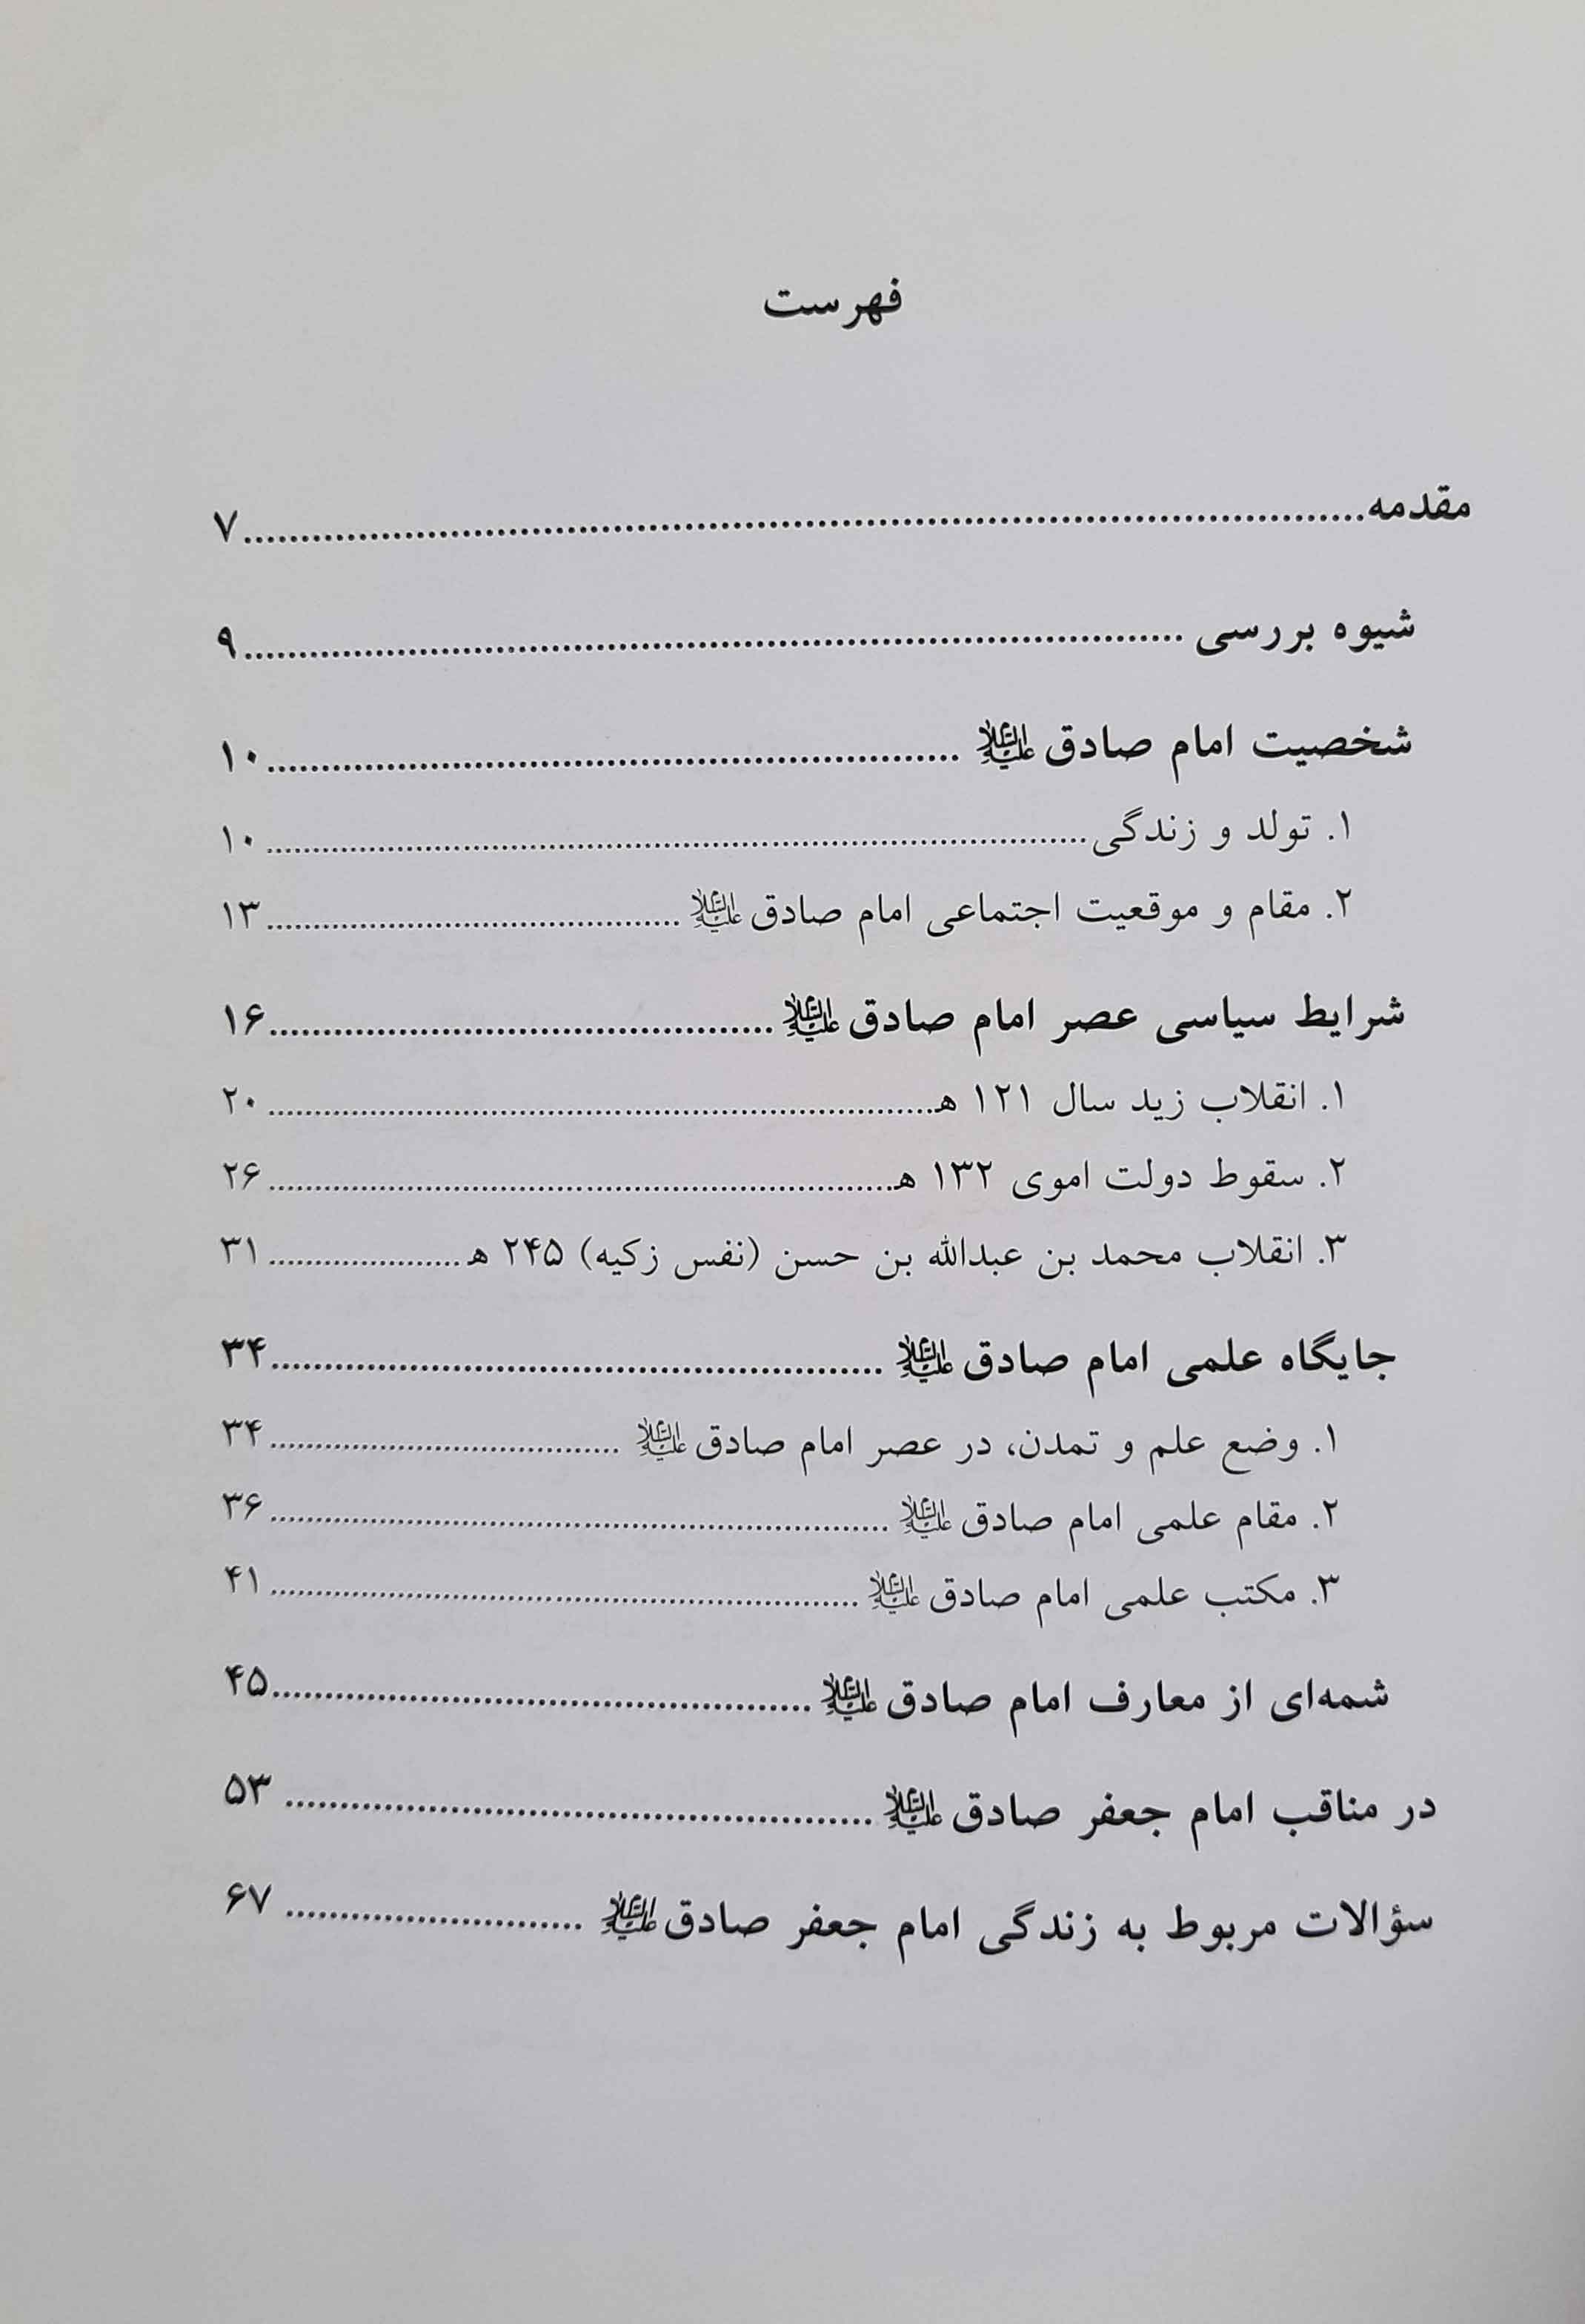 فهرست
مقدمه........................................................................................................۷
شیوه بررسی ........................................................................................۹
شخصیت امام صادق علیه‌السلام .................................................................۱۰
۱. تولد و زندگی......................................................................................... ۱۰
۲. مقام و موقعیت اجتماعی امام صادق علیه‌السلام ............................................. ۱۳
شرایط سیاسی عصر امام صادق علیه‌السلام ...............................................۱۶
۱. انقلاب زید سال ۱۲۱ هـ........................................................................ ۲۰
۲. سقوط دولت اموی ۱۳۲ هـ................................................................... ۲۶
۳. انقلاب محمد بن عبدالله بن حسن (نفس زکیه) ۲۴۵ هـ ..................... ۳۱
جایگاه علمی امام صادق علیه‌السلام .........................................................۳۴
۱. وضع علم و تمدن، در عصر امام صادق علیه‌السلام ...................................... ۳۴
۲. مقام علمی امام صادق علیه‌السلام ................................................................... ۳۶
۳. مکتب علمی امام صادق علیه‌السلام ................................................................ ۴۱
شمه‌ای از معارف امام صادق علیه‌السلام ...................................................۴۵
در مناقب امام جعفر صادق علیه‌السلام ...................................................... ۵۳
سؤالات مربوط به زندگی امام جعفر صادق علیه‌السلام ............................ ۶۷